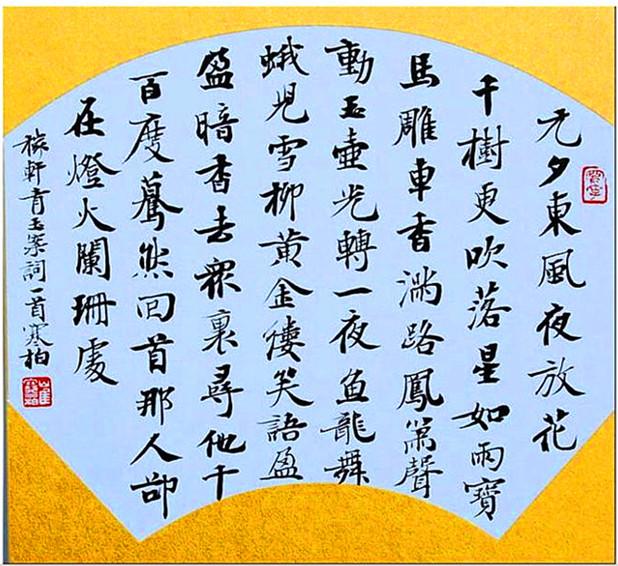 元夕東風夜放花
千樹更吹落星如雨寶
馬雕車香滿路鳳簫聲
動玉壺光轉一夜魚龍舞
蛾兒雪柳黃金縷笑語盈
盈暗香去衆裏尋他千
百度驀然回首那人卻
在燈火闌珊處
稼軒青玉案詞一首寒柏